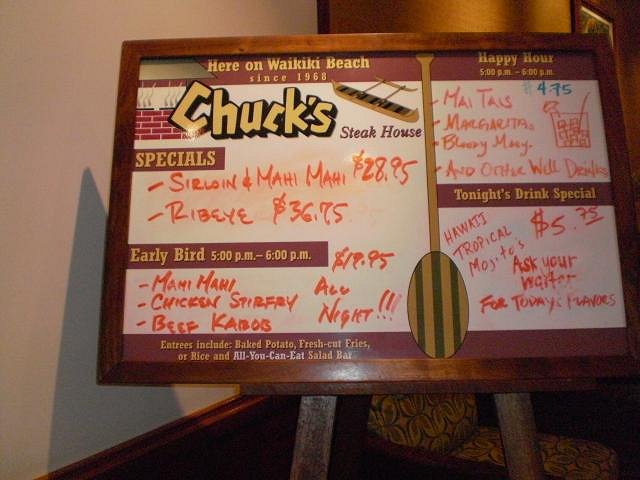 Here on Waikiki Beach
since 1968
Chuck's
Steak House
SPECIALS
- SIRLOIN & MAHI MAHI $28.95
- RIBEYE $36.75
Early Bird 5:00 p.m. – 6:00 p.m.
$19.95
- MAHI MAHI
- CHICKEN STIRFRY
- BEEF KABOB
ALL
NIGHT!!!
Entrees include: Baked Potato, Fresh-cut Fries,
or Rice and All-You-Can-Eat Salad Bar
Happy Hour
5:00 p.m. – 6:00 p.m.
$4.75
- MAI TAIS
- MARGARITAS
- BLOODY MARY.
- AND OTHER WELL DRINKS
Tonight's Drink Special
HAWAII
TROPICAL
MOJITO'S
$5.75
ASK YOUR
WAITER
FOR TODAYS FLAVORS